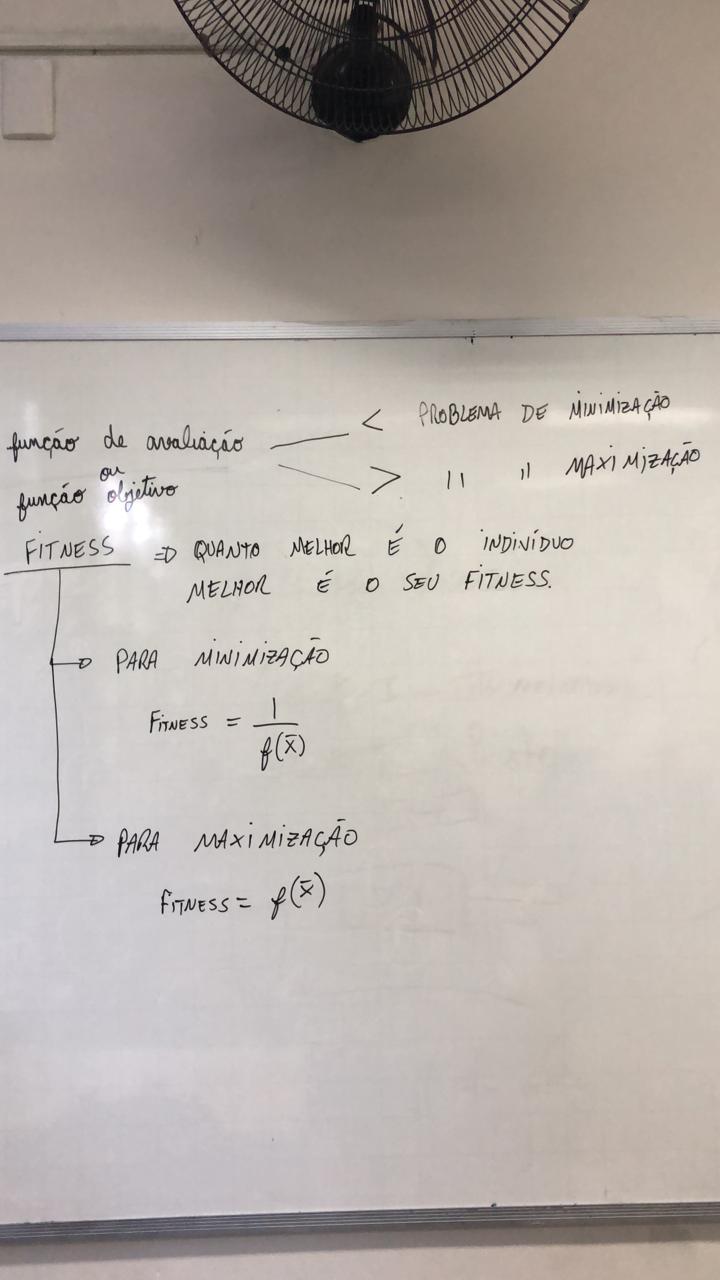 função de avaliação
ou
função objetivo
< PROBLEMA DE MINIMIZAÇÃO
> 11 11 MAXIMIZAÇÃO
FITNESS => QUANTO MELHOR É O INDIVÍDUO
MELHOR É O SEU FITNESS.
PARA MINIMIZAÇÃO
FITNESS = 1/f(x̄)
PARA MAXIMIZAÇÃO
FITNESS = f(x̄)